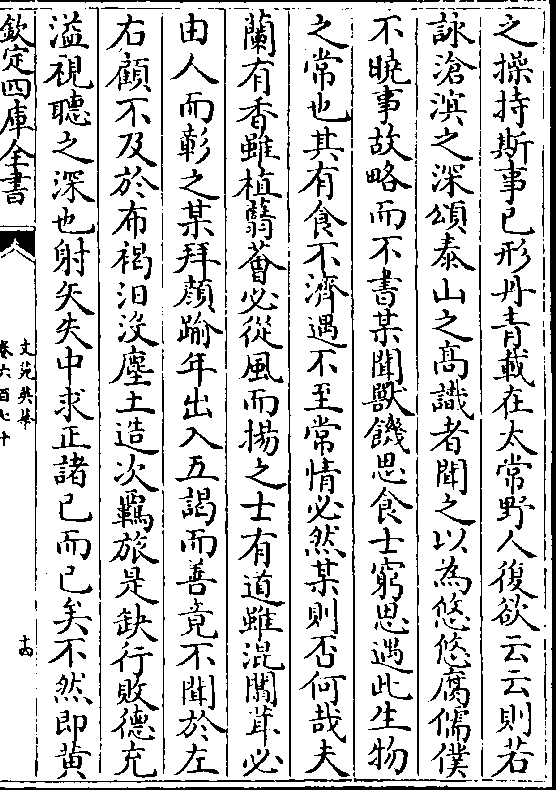 之操持斯事已形丹青載在太常野人復欲云云則若
詠滄溟之深頌泰山之髙識者聞之以為悠悠腐儒僕
不曉事故略而不書某聞獸饑思食士窮思遇此生物
之常也其有食不濟遇不至常情必然某則否何哉夫
蘭有香雖植蘙薈必從風而揚之士有道雖混闒茸必
由人而彰之某拜顔踰年出入五謁而善竟不聞於左
右顧不及於布褐汨没塵土造次羈旅是缺行敗德充
溢視聽之深也射矢失中求正諸已而已矣不然即黄
欽定四庫全書
文苑英華
卷六百七十
十四